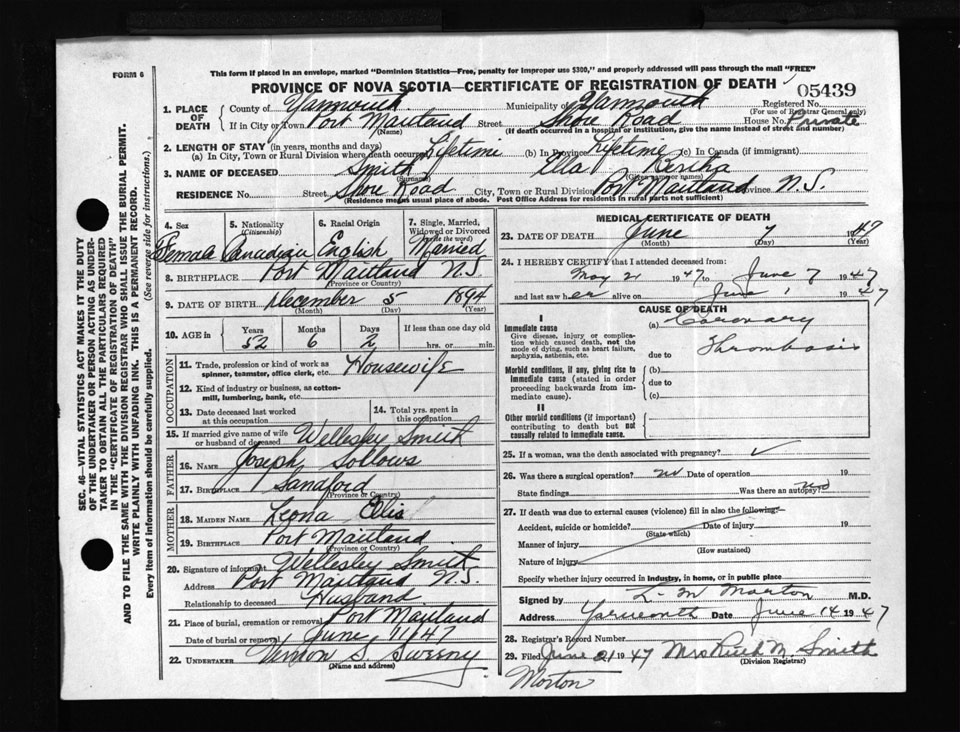 FORM 6
This form if placed in an envelope, marked "Dominion Statistics—Free, penalty for improper use $300," and properly addressed will pass through the mail "FREE"
PROVINCE OF NOVA SCOTIA—CERTIFICATE OF REGISTRATION OF DEATH
05439
1. PLACE OF DEATH
County of Yarmouth Municipality of Yarmouth Registered No.
(For use of Registrar General only)
If in City or Town Port Maitland Street Shore Road House No. Private
(Name) (If death occurred in a hospital or institution, give the name instead of street and number)
2. LENGTH OF STAY (in years, months and days)
(a) In City, Town or Rural Division where death occurred Lifetime (b) In Province Lifetime (c) In Canada (if immigrant)
3. NAME OF DECEASED Smith Ada Bertha
(Surname) (Given or names)
RESIDENCE No. Street Shore Road City, Town or Rural Division Port Maitland Province N.S.
(Residence means usual place of abode. Post Office Address for residents in rural parts not sufficient)
SEC. 46—VITAL STATISTICS ACT MAKES IT THE DUTY
OF THE UNDERTAKER OR PERSON ACTING AS UNDER-
TAKER TO OBTAIN ALL THE PARTICULARS REQUIRED
IN THE "CERTIFICATE OF REGISTRATION OF DEATH"
AND TO FILE THE SAME WITH THE DIVISION REGISTRAR WHO SHALL ISSUE THE BURIAL PERMIT.
WRITE PLAINLY WITH UNFADING INK. THIS IS A PERMANENT RECORD.
Every item of information should be carefully supplied. (See reverse side for instructions.)
4. Sex 5. Nationality (Citizenship) 6. Racial Origin 7. Single, Married, Widowed or Divorced (Write the word)
Female Canadian English Married
8. BIRTHPLACE Port Maitland N.S.
(Province or Country)
9. DATE OF BIRTH December 5 1894
(Month) (Day) (Year)
10. AGE in Years Months Days If less than one day old
52 6 2 hrs. or min.
OCCUPATION
11. Trade, profession or kind of work as spinner, teamster, office clerk, etc. Housewife
12. Kind of industry or business, as cotton-mill, lumbering, bank, etc.
13. Date deceased last worked at this occupation
14. Total yrs. spent in this occupation
15. If married give name of wife or husband of deceased Wellesley Smith
FATHER
16. Name Joseph Sollows
17. Birthplace Sandford
(Province or Country)
MOTHER
18. Maiden Name Leona Ellis
19. Birthplace Port Maitland
(Province or Country)
20. Signature of informant Wellesley Smith
Address Port Maitland N.S.
Relationship to deceased Husband
21. Place of burial, cremation or removal Port Maitland
Date of burial or removal June 11/47
22. UNDERTAKER Vernon S. Sweeny
(Name and address)
MEDICAL CERTIFICATE OF DEATH
23. DATE OF DEATH June 7 1947
(Month) (Day) (Year)
24. I HEREBY CERTIFY that I attended deceased from:
May 21 1947 to June 7 1947
and last saw her alive on June 1 1947
CAUSE OF DEATH
I
Immediate cause
Give disease, injury or complication which caused death, not the mode of dying, such as heart failure, asphyxia, asthenia, etc.
(a) Coronary Thrombosis
due to
Morbid conditions, if any, giving rise to immediate cause (stated in order proceeding backwards from immediate cause).
(b)
due to
(c)
II
Other morbid conditions (if important) contributing to death but not causally related to immediate cause.
25. If a woman, was the death associated with pregnancy?
26. Was there a surgical operation? no Date of operation 19
State findings Was there an autopsy?
27. If death was due to external causes (violence) fill in also the following:
Accident, suicide or homicide? Date of injury 19
(State which)
Manner of injury
(How sustained)
Nature of injury
Specify whether injury occurred in industry, in home, or in public place
Signed by L. M Morton M.D.
Address Yarmouth Date June 14 1947
28. Registrar's Record Number
29. Filed June 21 1947 Mrs Ruth M. Smith
(Division Registrar)
Morton